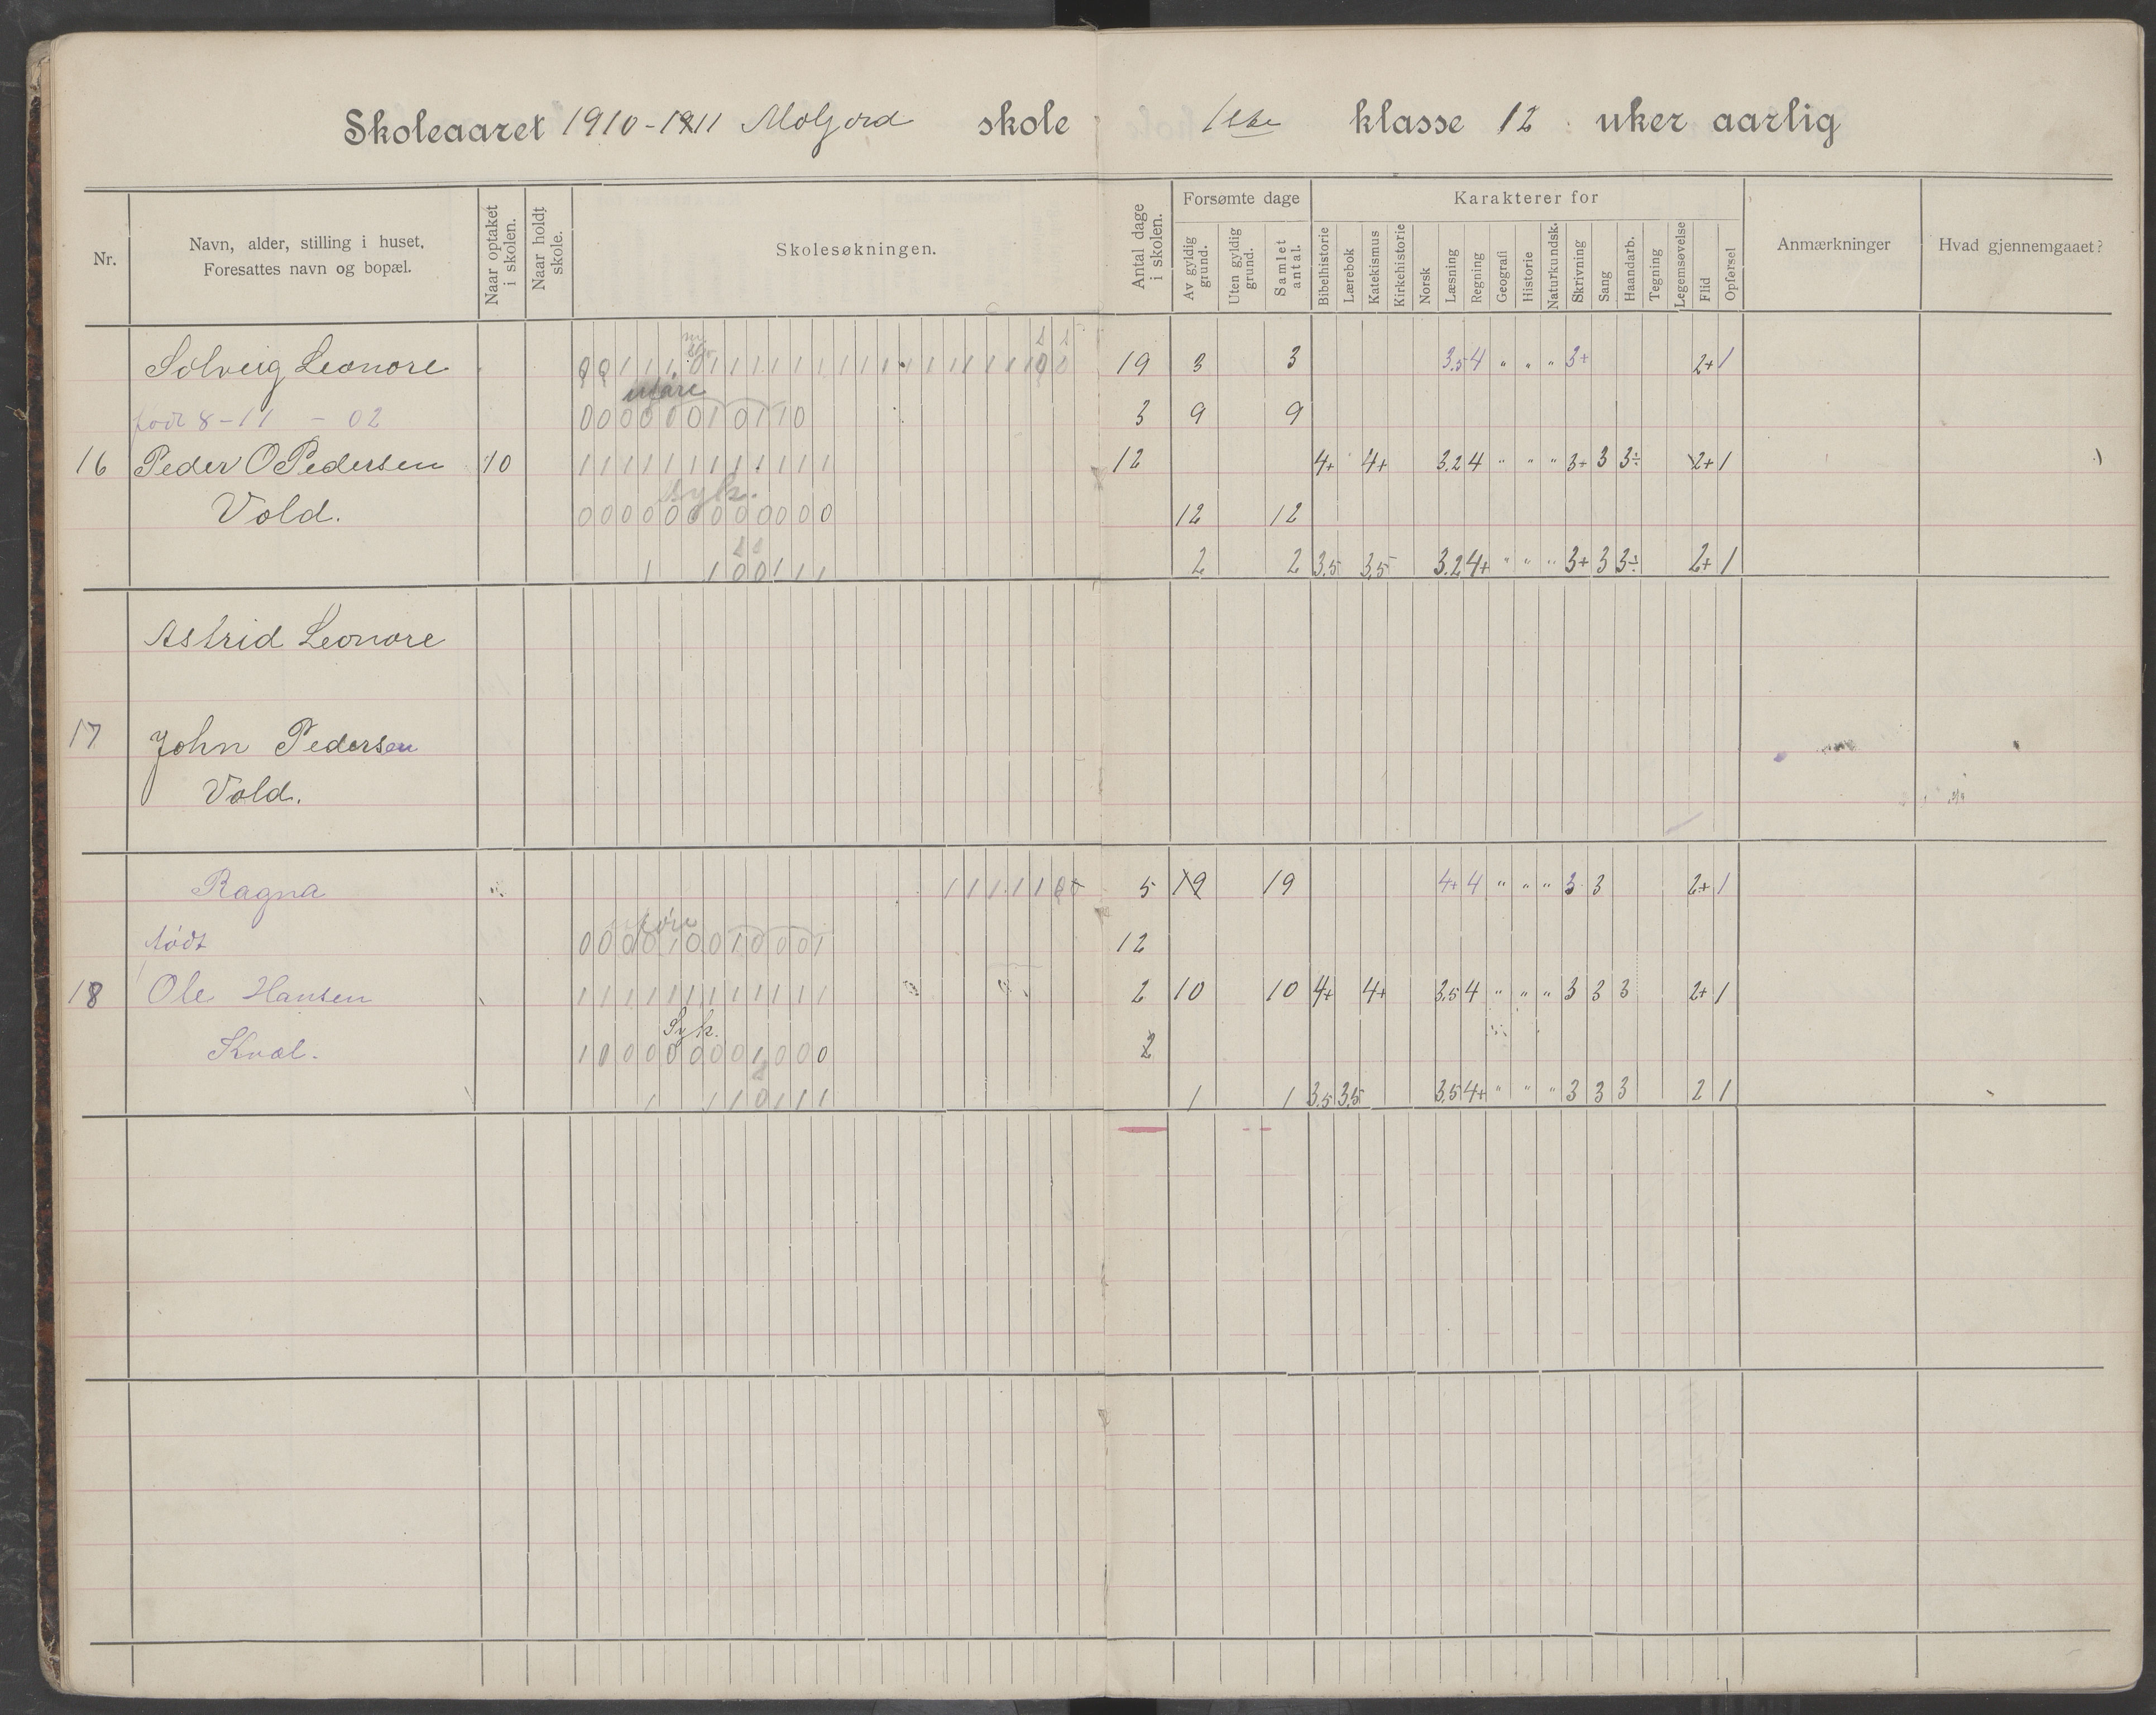 Skoleaaret 1910-1911 Moljord skole 1ste klasse 12 uker aarlig
Nr.
Navn, alder, stilling i huset.
Foresattes navn og bopæl.
Naar optaket i skolen.
Naar holdt skole.
Skolesøkningen.
Antal dage i skolen.
Forsømte dage
Av gyldig grund.
Uten gyldig grund.
Samlet antal.
Karakterer for
Bibelhistorie
Lærebok
Katekismus
Kirkehistorie
Norsk
Læsning
Regning
Geografi
Historie
Naturkundsk.
Skrivning
Sang
Haandarb.
Tegning
Legemsøvelse
Flid
Opførsel
Anmærkninger
Hvad gjennemgaaet?
Solveig Leonore 19 3 3 3.5 4 " " " 3+ 2+ 1
uføre
født 8-11 - 02 0 0 0 0 0 0 1 0 1 1 0 3 9 9
16 Peder O Pedersen 10 1 1 1 1 1 1 1 1 1 1 1 1 12 4+ 4+ 3.2 4 " " " 3+ 3 3÷ 2+ 1
Syk.
Vold. 0 0 0 0 0 0 0 0 0 0 0 0 12 12
1 1 0 0 1 1 1 2 2 3.5 3.5 3.2 4+ " " " 3+ 3 3÷ 2+ 1
Astrid Leonore
17 John Pedersen
Vold.
Ragna 1 1 1 1 1 5 19 19 4+ 4 " " " 3 3 2+ 1
uføre
født 0 0 0 0 1 0 0 1 0 0 0 1 12
18 Ole Hansen 1 1 1 1 1 1 1 1 1 1 1 1 2 10 10 4+ 4+ 3.5 4 " " " 3 3 3 2+ 1
Syk.
Kvæl. 1 0 0 0 0 0 0 0 1 0 0 0 2
1 1 1 0 1 1 1 1 1 3.5 3.5 3.5 4+ " " " 3 3 3 2 1